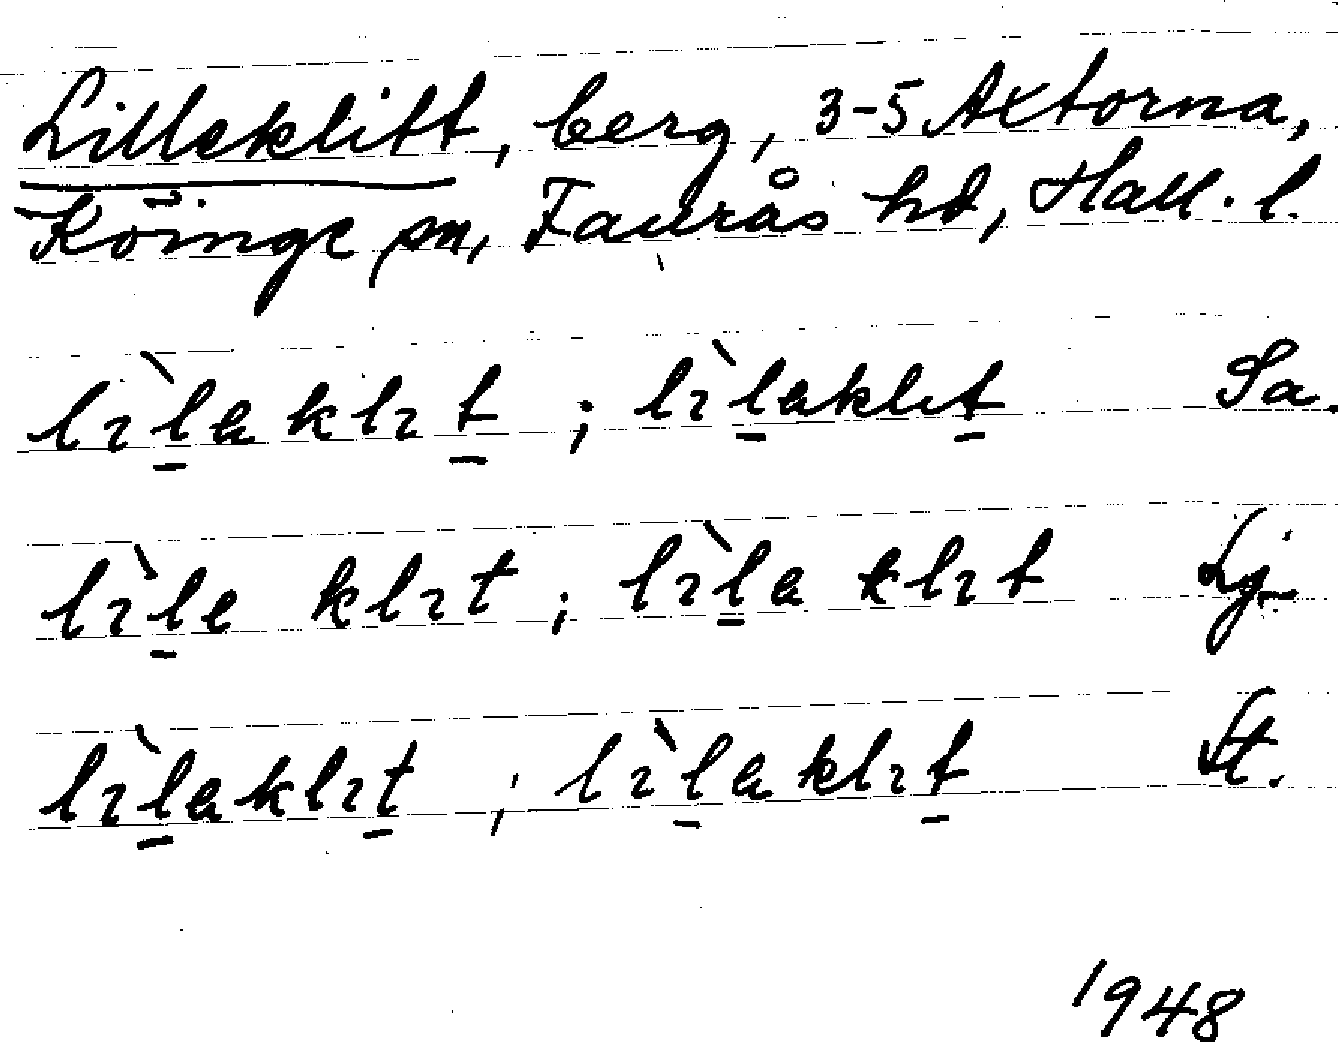 Lilleklitt, berg, 3-5 Axtorna,
Köinge sn, Faurås hd, Hall. l.
lìlaklıt ; lìlaklıt Sa.
lìle klıt ; lìla klıt Lj-
lìlaklıt ; lìlaklıt St.
1948